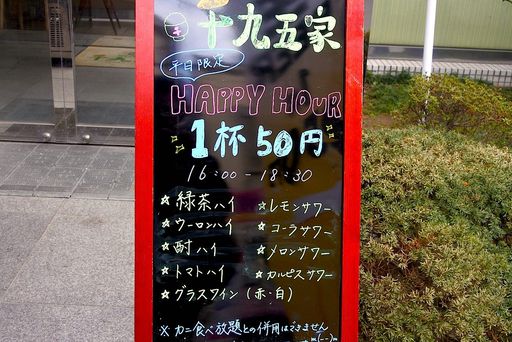 十九五家
平日限定
HAPPY HOUR
1杯50円
16:00-18:30
☆緑茶ハイ ☆レモンサワー
☆ウーロンハイ ☆コーラサワー
☆酎ハイ ☆メロンサワー
☆トマトハイ ☆カルピスサワー
☆グラスワイン(赤・白)
※カニ食べ放題との併用はできません
m(--)m